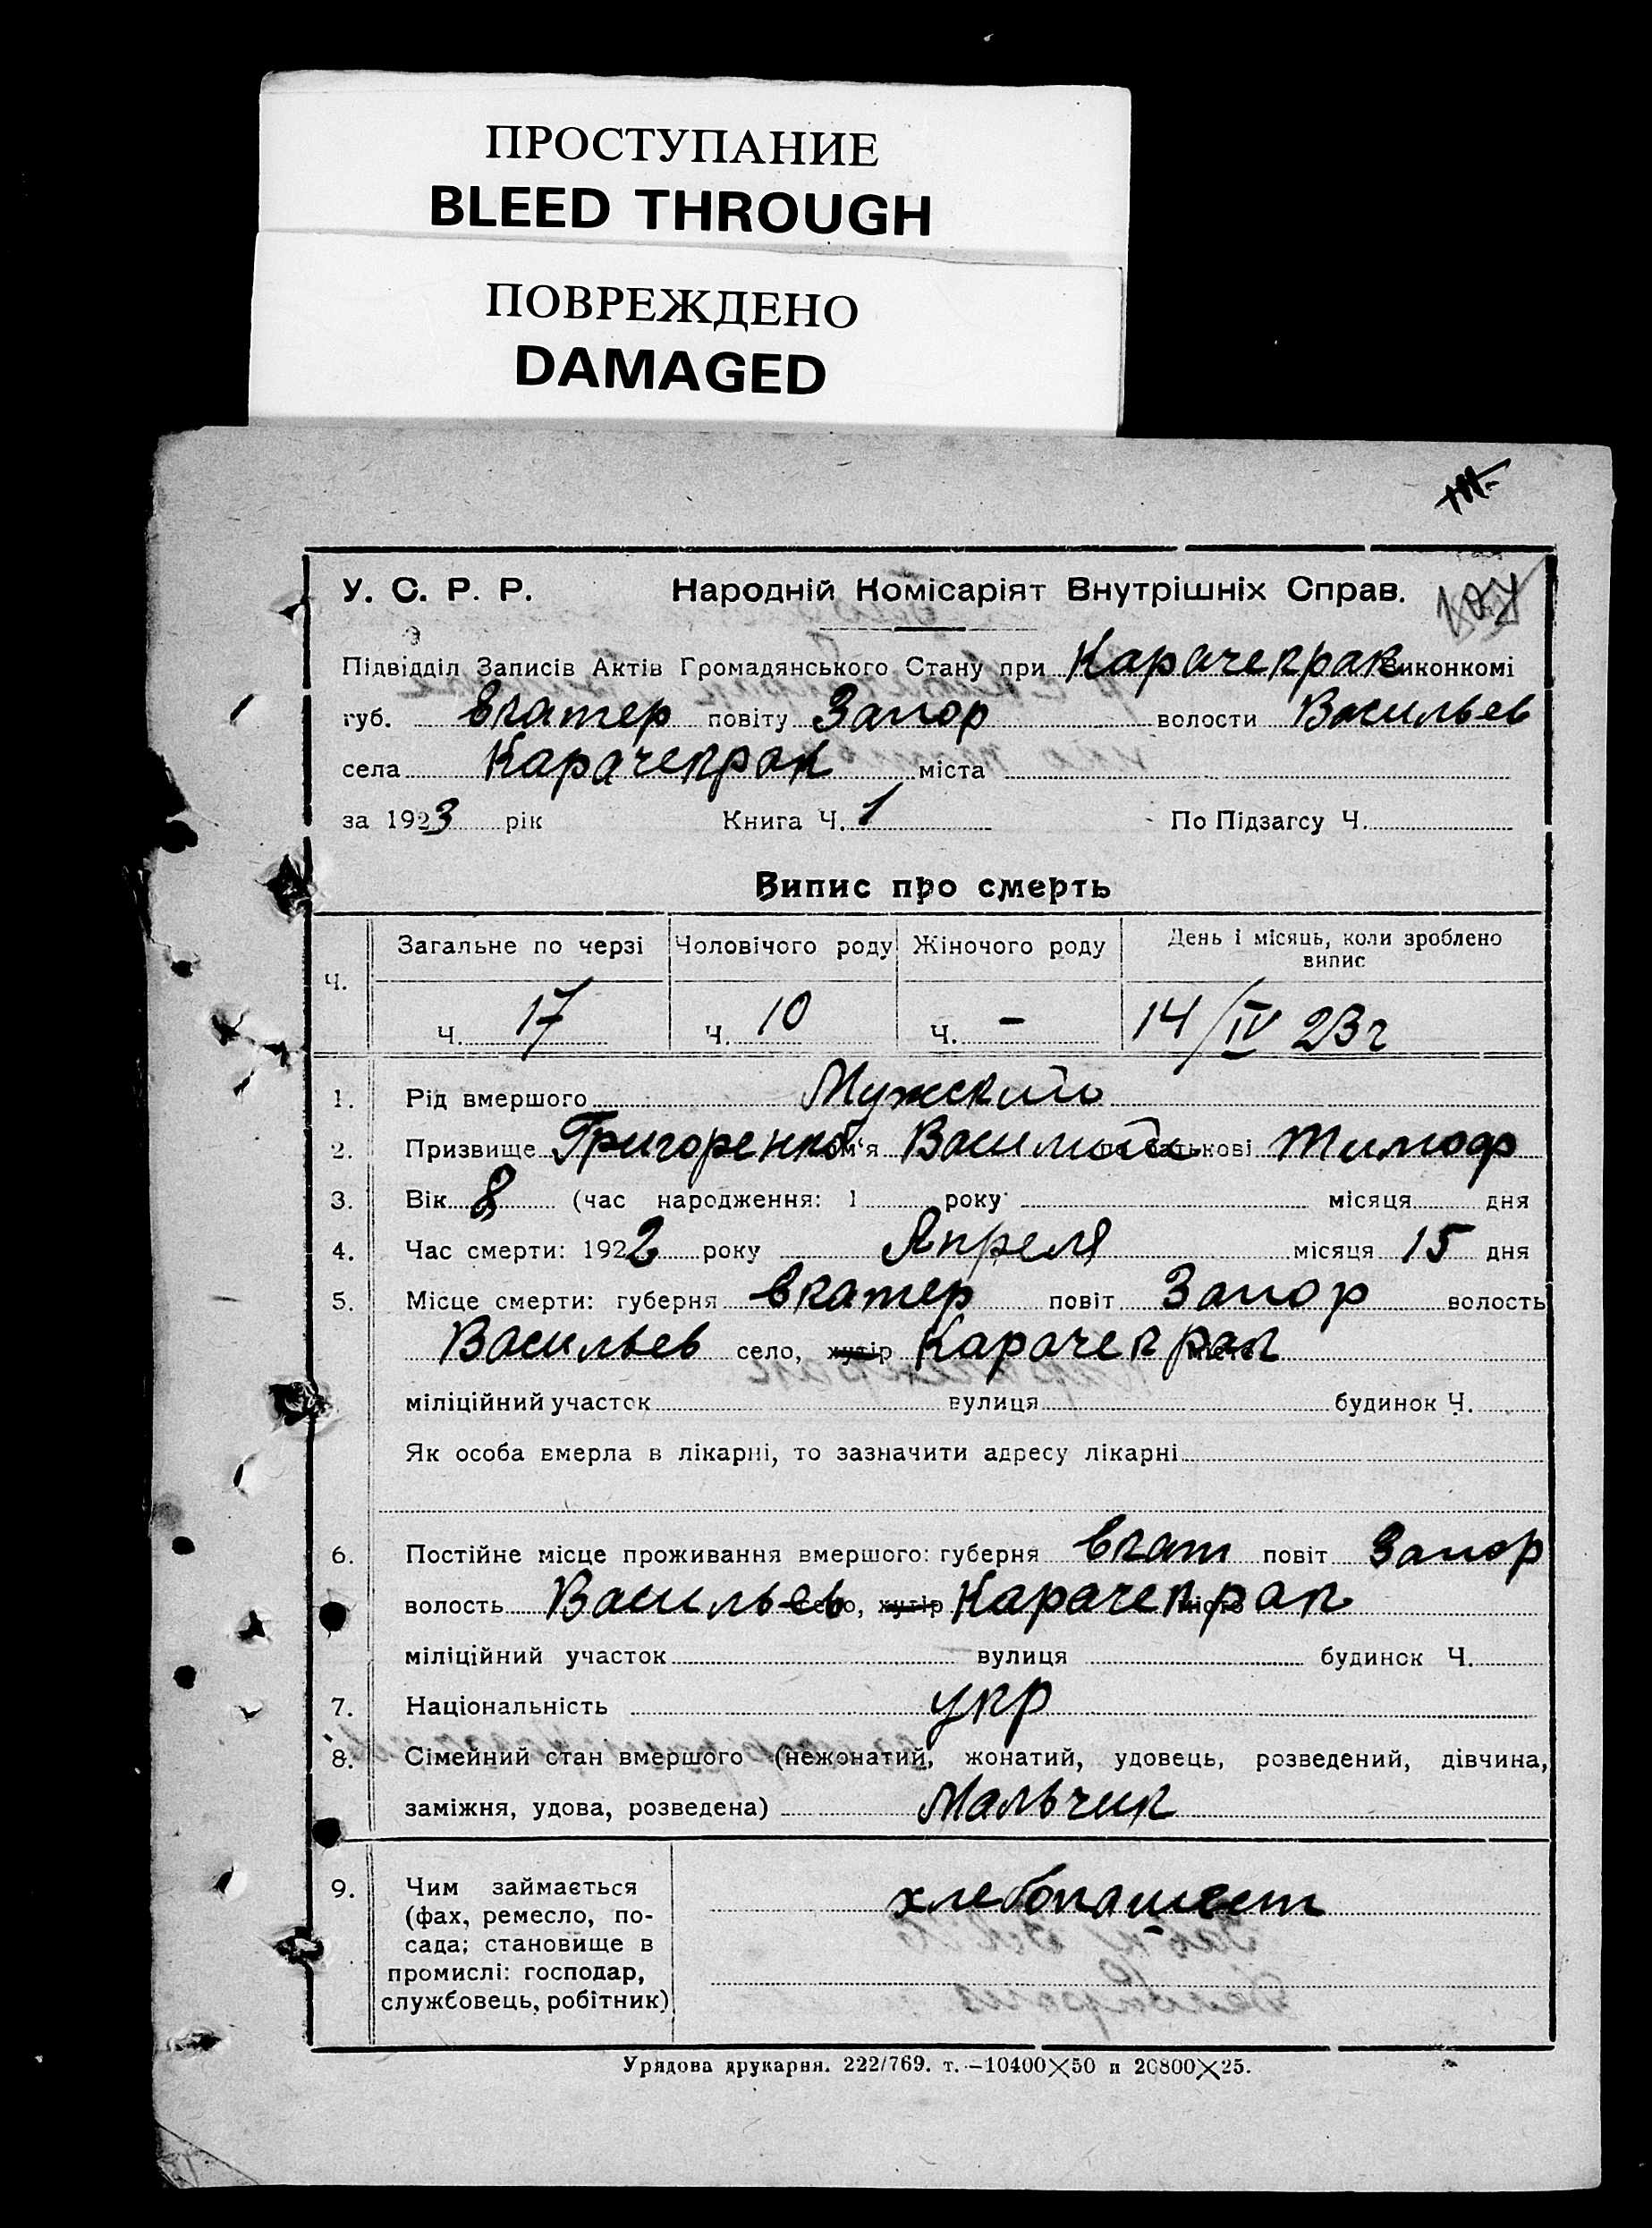 ПРОСТУПАНИЕ
BLEED THROUGH
ПОВРЕЖДЕНО
DAMAGED
У. С. Р. Р. Народній Комісаріят Внутрішніх Справ.
Підвідділ Записів Актів Громадянського Стану при Карачекрак виконкомі
губ. Екатер повіту Запор волости Васильев
села Карачекрак міста
за 1923 рік Книга Ч. 1 По Підзагсу Ч.
Випис про смерть
Ч. Загальне по черзі Чоловічого роду Жіночого роду День і місяць, коли зроблено випис
Ч. 17 Ч. 10 Ч. – 14/IV 23 г
1. Рід вмершого Мужской
2. Призвище Григоренко ім'я Василий по батькові Тимоф
3. Вік 8 (час народження: 1 року місяця дня
4. Час смерти: 1922 року Апреля місяця 15 дня
5. Місце смерти: губерня Екатер повіт Запор волость
Васильев село, хутір Карачекрак місто
міліційний участок вулиця будинок Ч.
Як особа вмерла в лікарні, то зазначити адресу лікарні
6. Постійне місце проживання вмершого: губерня Екат повіт Запор
волость Васильев село, хутір Карачекрак місто
міліційний участок вулиця будинок Ч.
7. Національність укр
8. Сімейний стан вмершого (нежонатий, жонатий, удовець, розведений, дівчина,
заміжня, удова, розведена) Мальчик
9. Чим займається хлебопашест
(фах, ремесло, по-
сада; становище в
промислі: господар,
службовець, робітник)
Урядова друкарня. 222/769. т.—10400×50 и 20800×25.